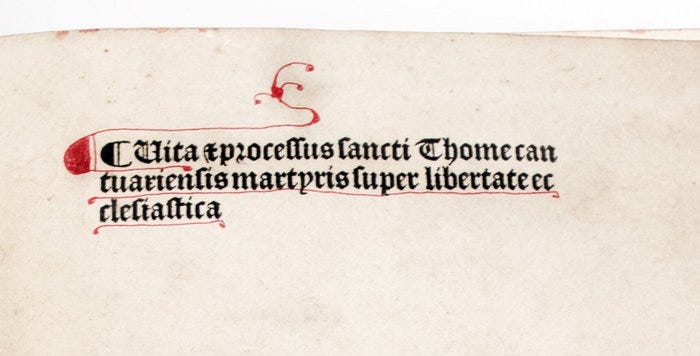 ¶ Uita ⁊ ꝓceſſus ſancti Thome can
tuarienſis martyris ſuper libertate ec
cleſiaſtica